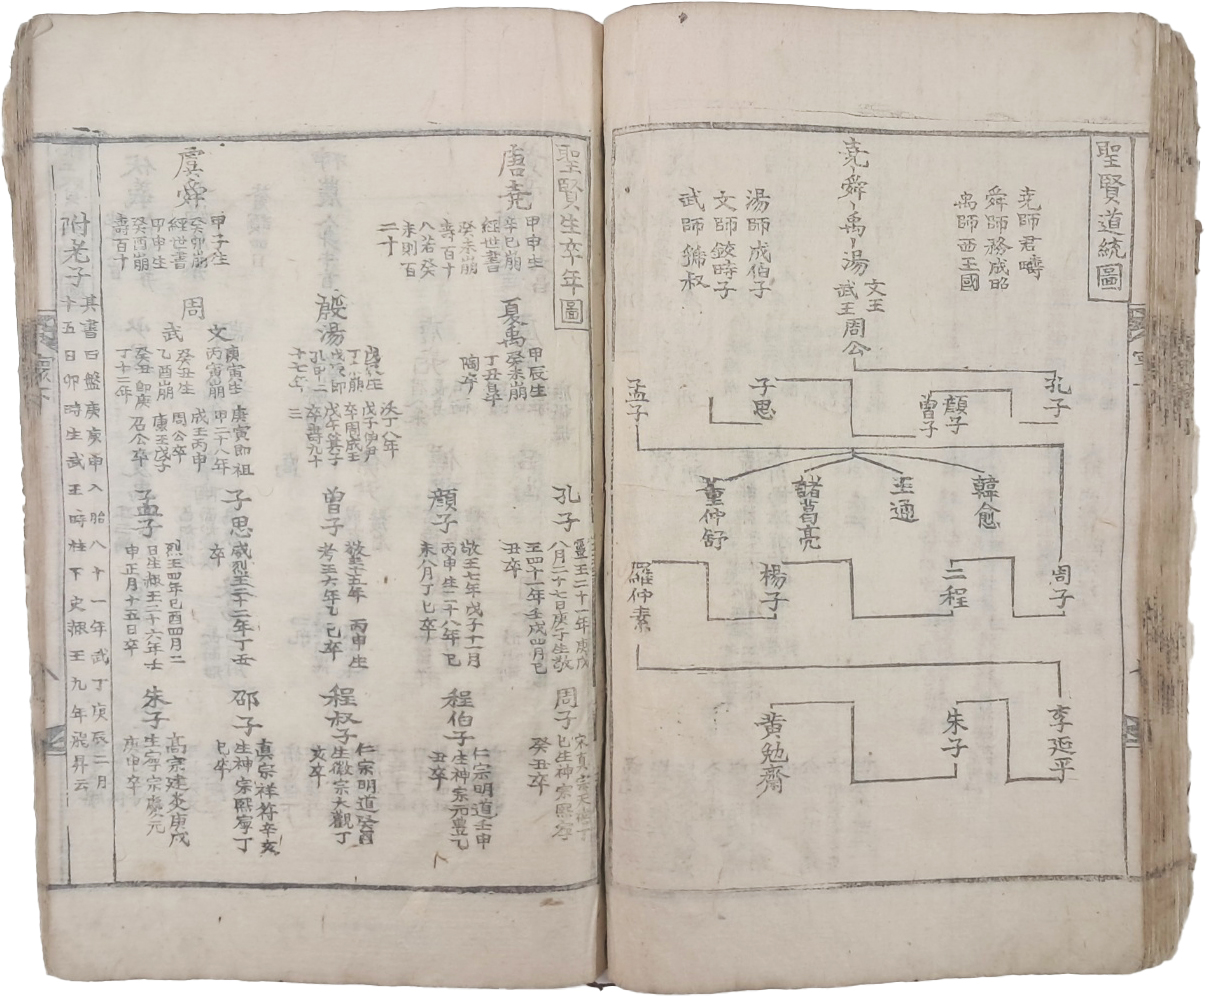 聖賢道統圖
堯師君疇
舜師務成昭
禹師西王國
堯舜禹湯
文王
武王
周公
湯師成伯子
文師鉸時子
武師
叔
孔子
顔子
曽子
子思
孟子
韓愈
王通
諸葛亮
董仲舒
周子
二程
楊子
羅仲素
李延平
朱子
黄勉齋
聖賢生卒年圖
唐堯
甲申生
辛巳崩
経世書
癸未崩
壽百十
八若癸
未則百
二十
虞舜
甲子生
癸卯崩
経世書
甲申生
癸酉崩
壽百十
夏禹
甲辰生
癸未崩
丁丑
殷湯
沃丁八年
周
文
庚寅生
丙寅崩
庚寅即祖
甲二十八年
武
癸丑生
乙酉崩
癸丑即庚
丁十三年
成王丙申
周公卒
康王戊子
召公卒
孔子
靈王二十一年庚戌
八月二十七日庚子生敬
王四十一年壬戌四月己
丑卒
顔子
敬王七年戊子十一月
丙申生二十八年
未八月丁巳卒
曽子
丙申生
考王六年乙
巳卒
子思
威烈王二十二年丁丑
卒
孟子
烈王四年己酉四月二
日生赧王二十六年壬
申正月十五日卒
周子
宋真宗天禧丁
巳生神宗熙寧
癸丑卒
程伯子
仁宗明道壬申
生神宗元豊乙
丑卒
程叔子
仁宗明道癸酉
生徽宗大觀丁
亥卒
邵子
真宗祥符辛亥
生神宗熙寧丁
巳卒
朱子
高宗建炎庚戌
生寧宗慶元
庚申卒
附老子
其書曰盤庚庚申入胎八十一年武丁庚辰二月
十五日卯時生武王時柱下史赧王九年飛昇云